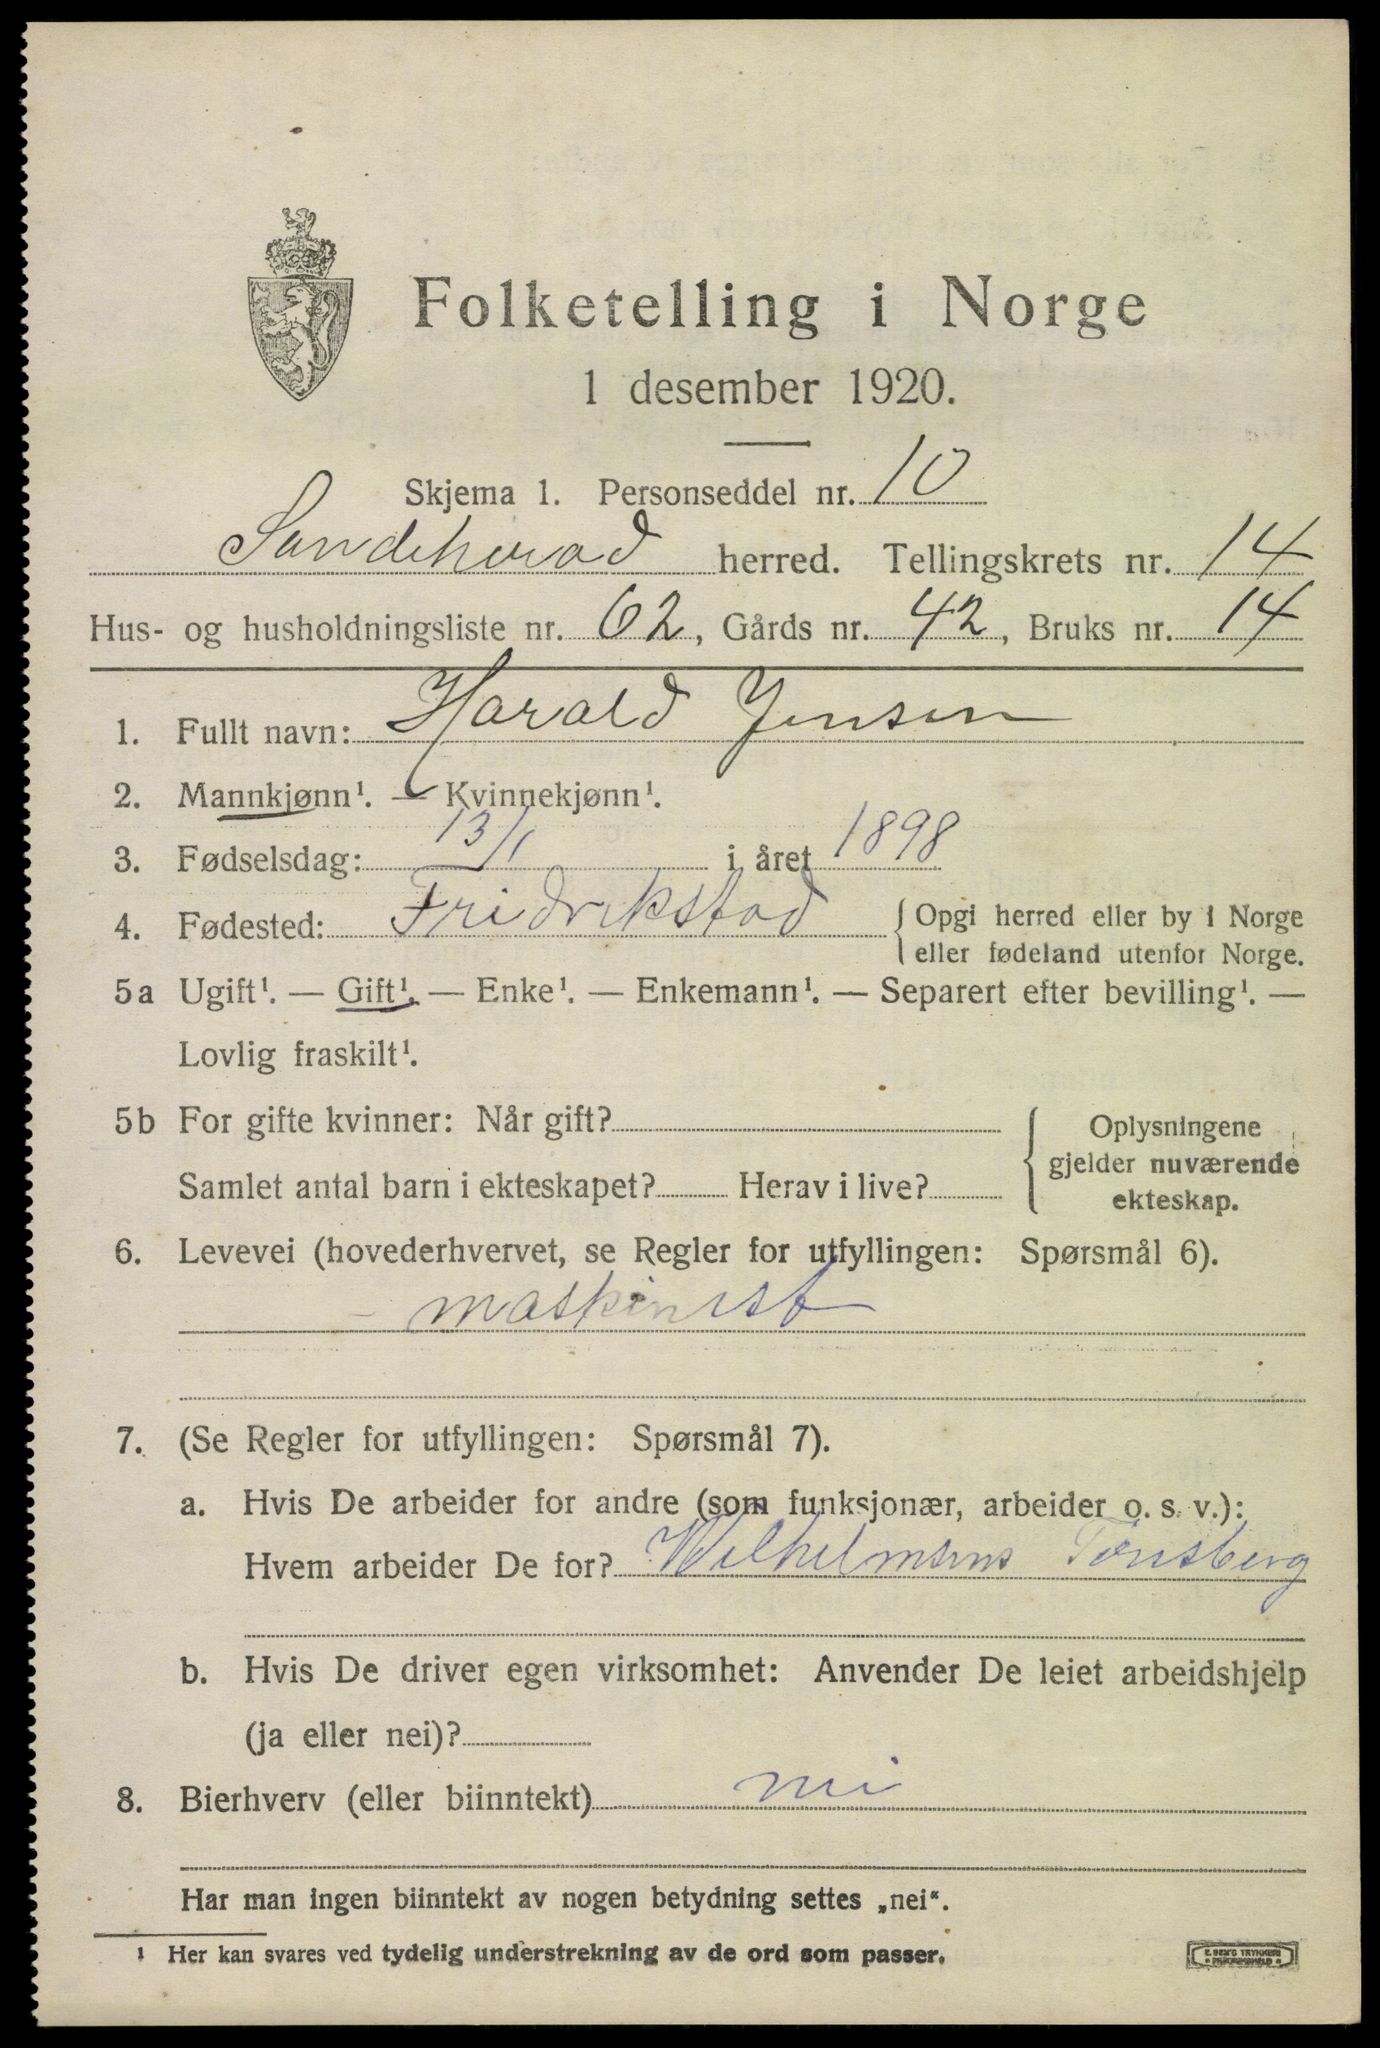 Folketelling i Norge
1 desember 1920.
Skjema 1. Personseddel nr. 10
Sandeherad herred. Tellingskrets nr. 14
Hus- og husholdningsliste nr. 62, Gårds nr. 42, Bruks nr. 14
1. Fullt navn: Harald Jensen
2. Mannkjønn¹. — Kvinnekjønn¹.
3. Fødselsdag: 13/1 i året 1898
4. Fødested: Fridrikstad { Opgi herred eller by i Norge
eller fødeland utenfor Norge.
5a Ugift¹. — Gift¹. — Enke¹. — Enkemann¹. — Separert efter bevilling¹. —
Lovlig fraskilt¹.
5b For gifte kvinner: Når gift?
Samlet antal barn i ekteskapet? Herav i live?
{ Oplysningene
gjelder nuværende
ekteskap.
6. Levevei (hovederhvervet, se Regler for utfyllingen: Spørsmål 6).
maskinist
7. (Se Regler for utfyllingen: Spørsmål 7).
a. Hvis De arbeider for andre (som funksjonær, arbeider o. s. v.):
Hvem arbeider De for? Wilhelmsens Tønsberg
b. Hvis De driver egen virksomhet: Anvender De leiet arbeidshjelp
(ja eller nei)?
8. Bierhverv (eller biinntekt) nei
Har man ingen biinntekt av nogen betydning settes „nei“.
¹ Her kan svares ved tydelig understrekning av de ord som passer.